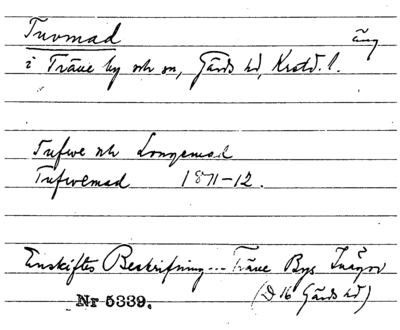 Tuvmad äng
i Träne by och sn, Gärds hd, Krstd. l.
Tufwe och Longemad
Tufwemad 1811-12.
Enskiftes Beskrifning... Träne Bys Inägor
Nr 5339. (D 16 Gärds hd)